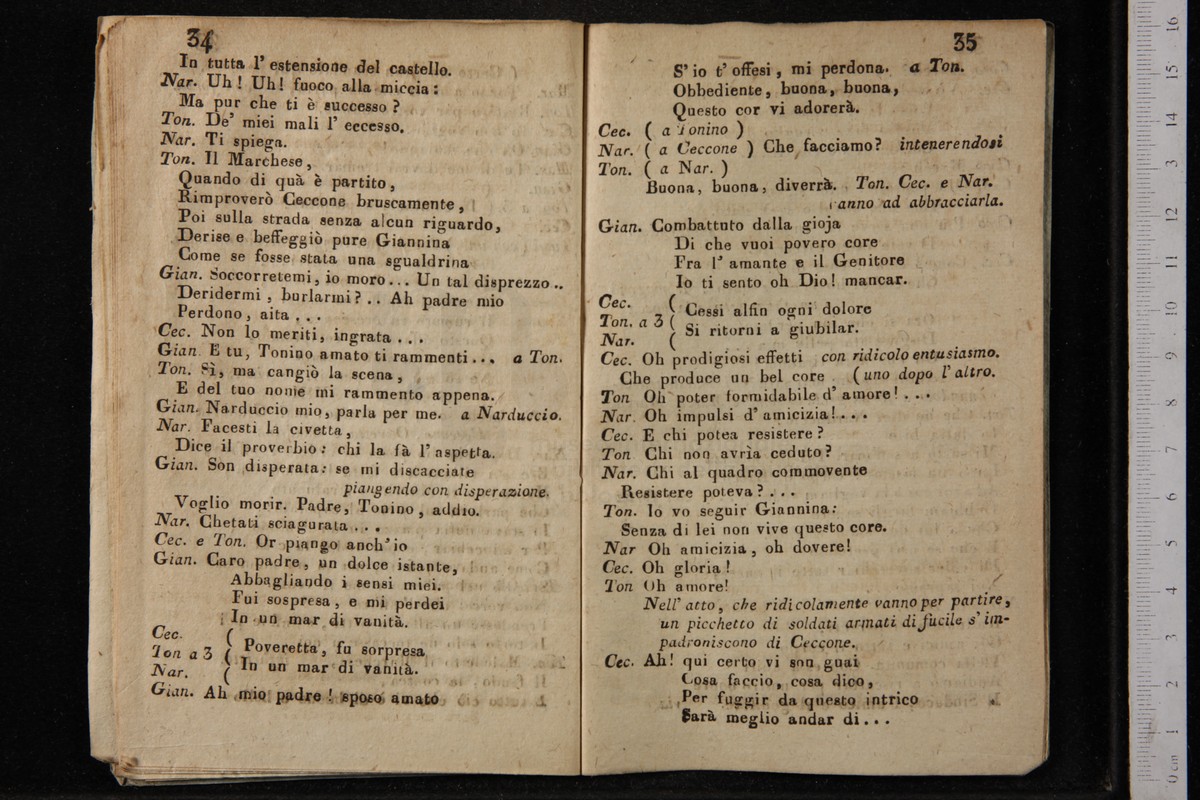 34
In tutta l' estensione del castello.
Nar. Uh! Uh! fuoco alla miccia:
Ma pur che ti è successo ?
Ton. De' miei mali l' eccesso.
Nar. Ti spiega.
Ton. Il Marchese,
Quando di quà è partito,
Rimproverò Ceccone bruscamente,
Poi sulla strada senza alcun riguardo,
Derise e beffeggiò pure Giannina
Come se fosse stata una sgualdrina
Gian. Soccorretemi, io moro... Un tal disprezzo..
Deridermi, burlarmi?.. Ah padre mio
Perdono, aita...
Cec. Non lo meriti, ingrata...
Gian. E tu, Tonino amato ti rammenti... a Ton.
Ton. Sì, ma cangiò la scena,
E del tuo nome mi rammento appena.
Gian. Narduccio mio, parla per me. a Narduccio.
Nar. Facesti la civetta,
Dice il proverbio: chi la fà l' aspetta.
Gian. Son disperata: se mi discacciate
piangendo con disperazione.
Voglio morir. Padre, Tonino, addio.
Nar. Chetati sciagurata...
Cec. e Ton. Or piango anch' io
Gian. Caro padre, un dolce istante,
Abbagliando i sensi miei.
Fui sospresa, e mi perdei
In un mar di vanità.
Cec. (
Ton a 3 ( Poveretta, fu sorpresa
Nar. ( In un mar di vanità.
Gian. Ah mio padre! sposo amato
35
S' io t' offesi, mi perdona. a Ton.
Obbediente, buona, buona,
Questo cor vi adorerà.
Cec. ( a Tonino )
Nar. ( a Ceccone ) Che facciamo? intenerendosi
Ton. ( a Nar. )
Buona, buona, diverrà. Ton. Cec. e Nar.
vanno ad abbracciarla.
Gian. Combattuto dalla gioja
Di che vuoi povero core
Fra l' amante e il Genitore
Io ti sento oh Dio! mancar.
Cec. (
Ton. a 3 ( Cessi alfin ogni dolore
Nar. ( Si ritorni a giubilar.
Cec. Oh prodigiosi effetti con ridicolo entusiasmo.
Che produce un bel core (uno dopo l' altro.
Ton Oh poter formidabile d' amore!...
Nar. Oh impulsi d' amicizia!...
Cec. E chi potea resistere?
Ton Chi non avrìa ceduto?
Nar. Chi al quadro commovente
Resistere poteva?...
Ton. Io vo seguir Giannina:
Senza di lei non vive questo core.
Nar Oh amicizia, oh dovere!
Cec. Oh gloria!
Ton Oh amore!
Nell' atto, che ridicolamente vanno per partire,
un picchetto di soldati armati di fucile s' im-
padroniscono di Ceccone.
Cec. Ah! qui certo vi son guai
Cosa faccio, cosa dico,
Per fuggir da questo intrico
Sarà meglio andar di...
0 cm 1 2 3 4 5 6 7 8 9 10 11 12 13 14 15 16